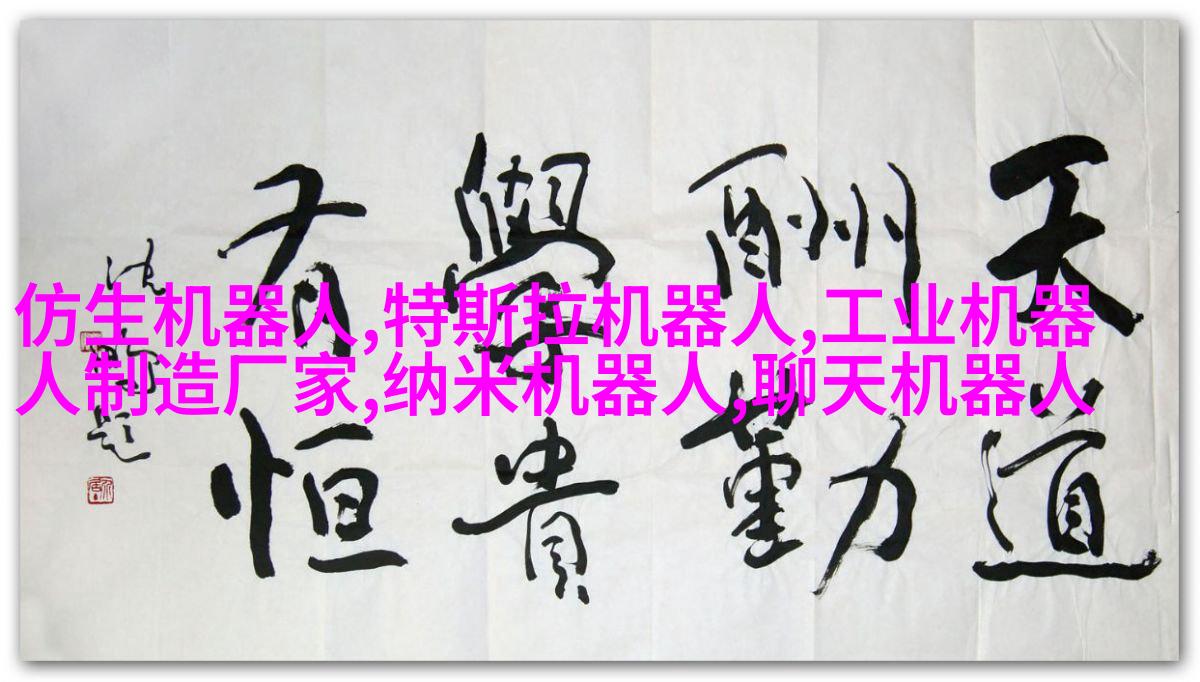 天道
酬勤
學貴
有恒
仿生机器人,特斯拉机器人,工业机器
人制造厂家,纳米机器人,聊天机器人